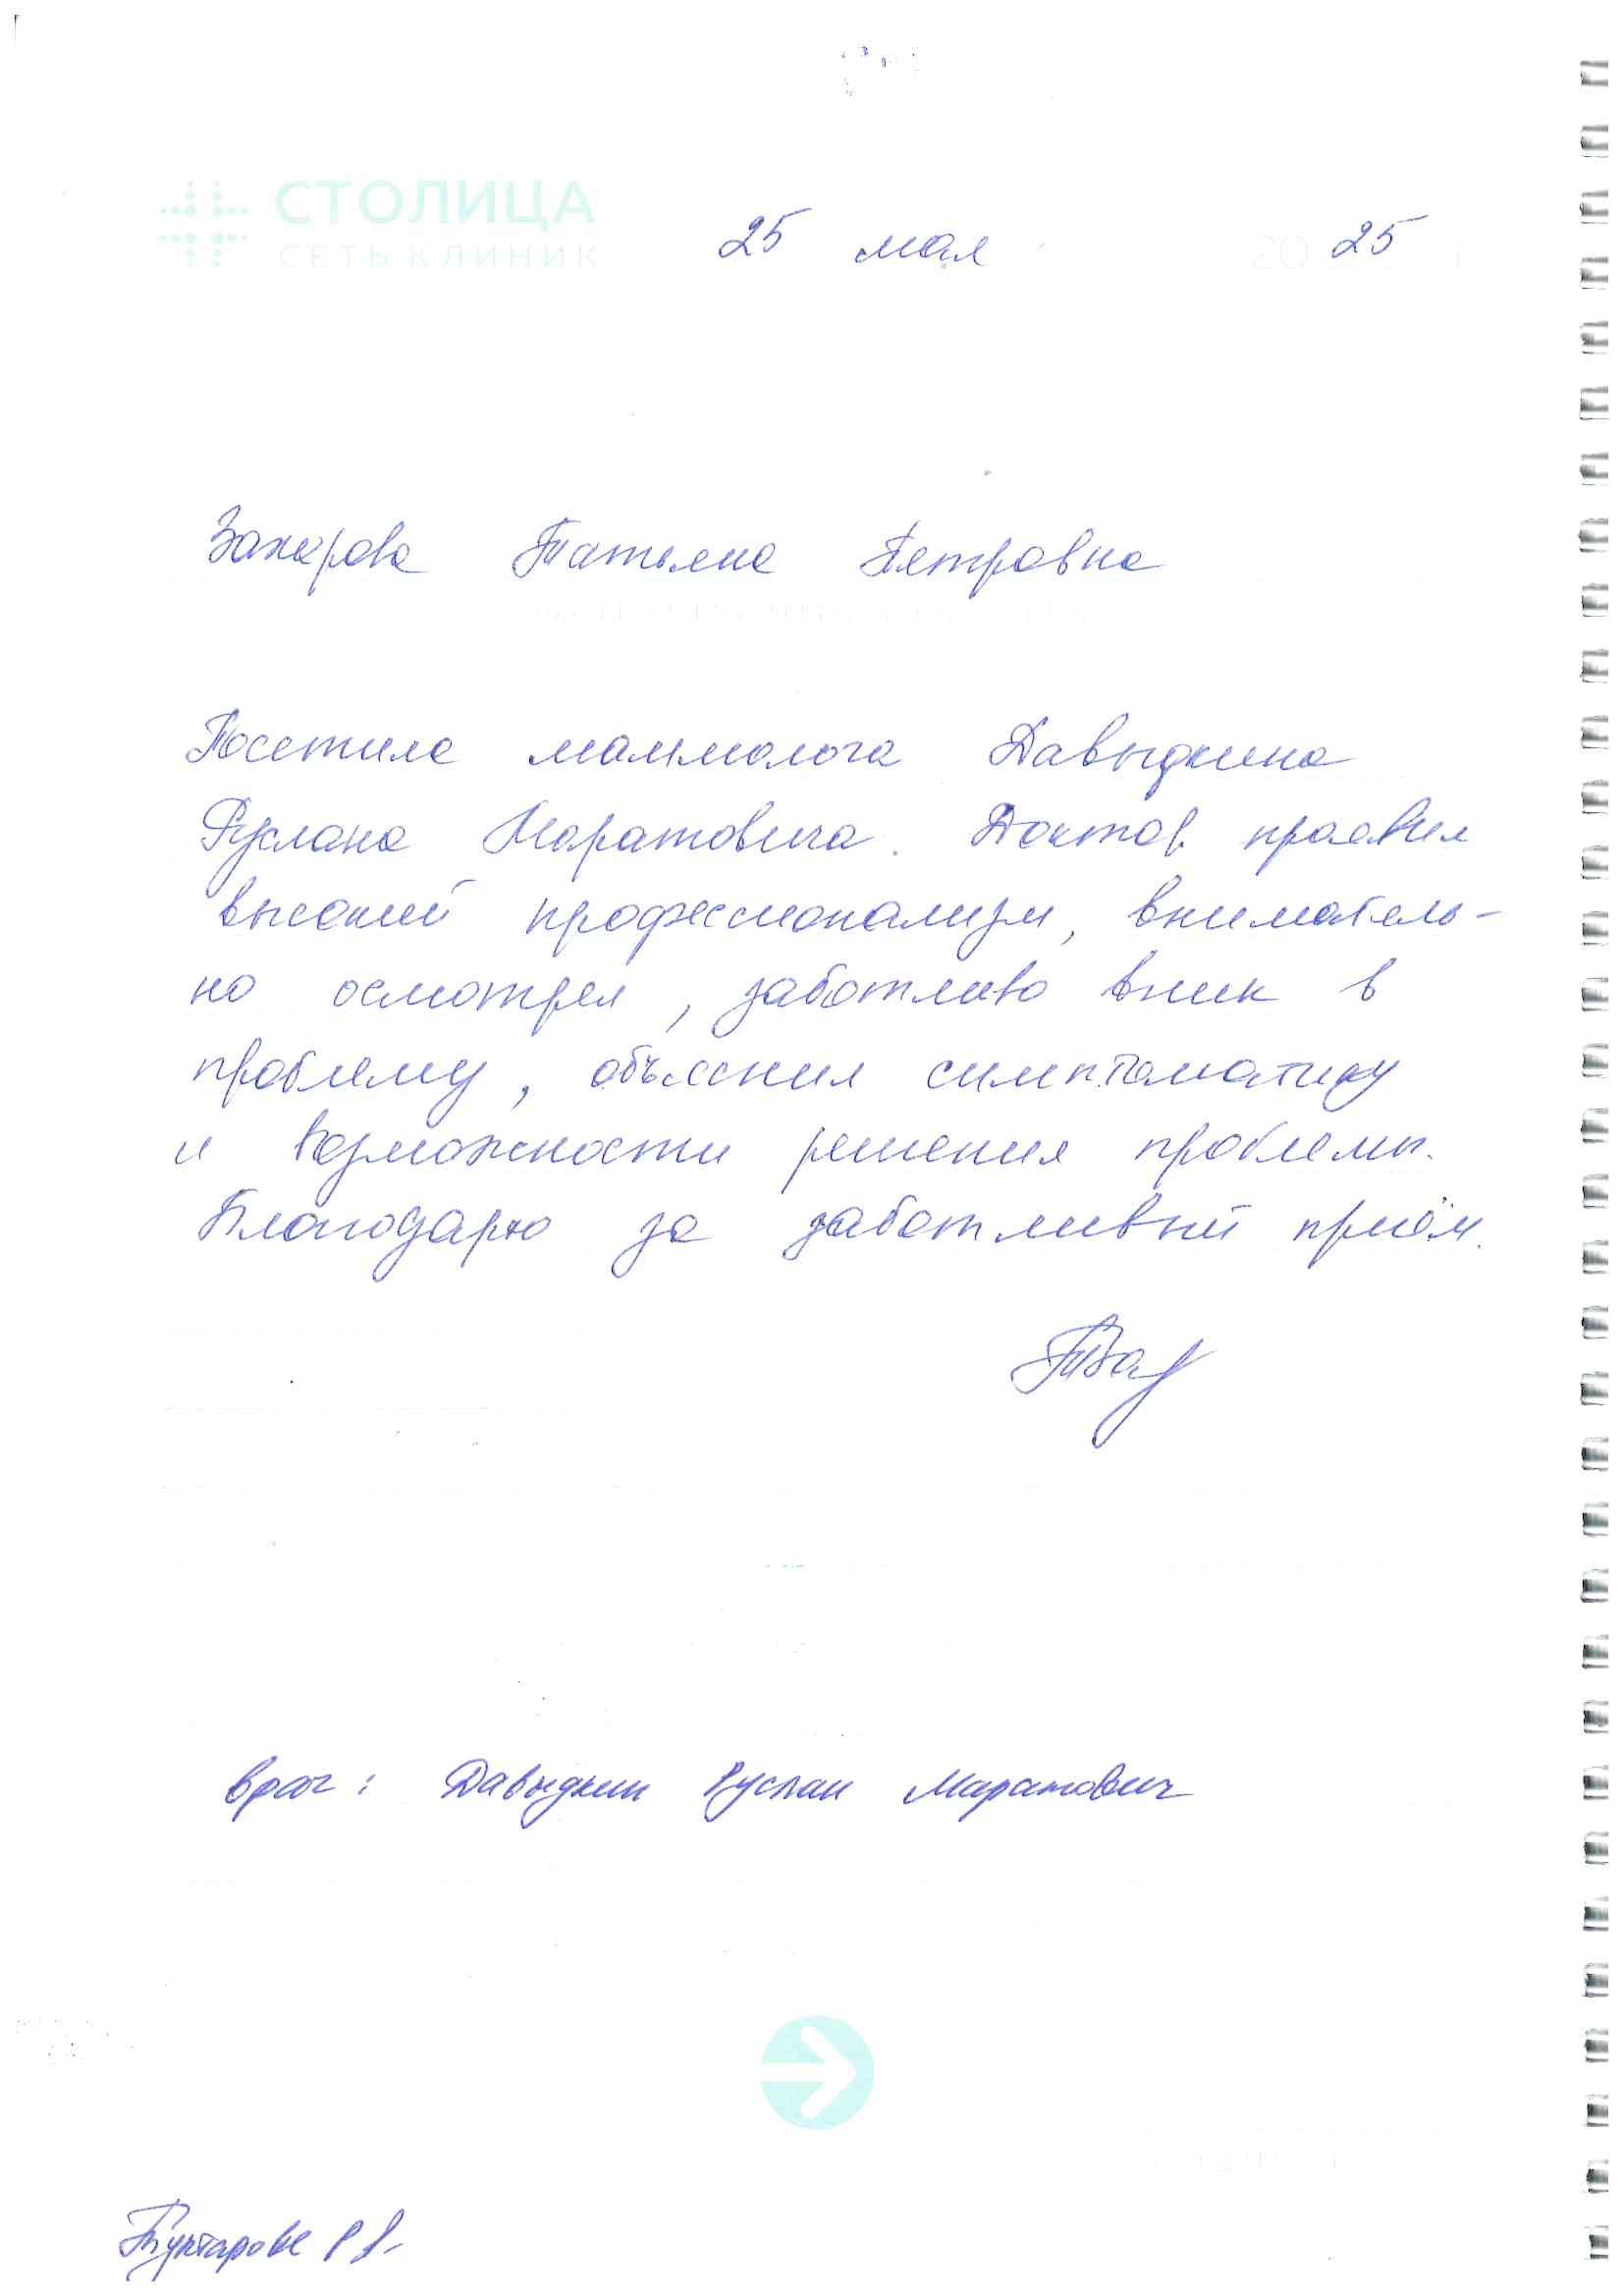 СТОЛИЦА
СЕТЬ КЛИНИК
25 мая 25
Захарова Татьяна Петровна
Посетила маммолога Давыдкина
Руслана Маратовича. Доктор проявил
высокий профессионализм, вниматель-
но осмотрел, заботливо вник в
проблему, объяснил симптоматику
и возможности решения проблемы.
Благодарю за заботливый приём.
врач: Давыдкин Руслан Маратович